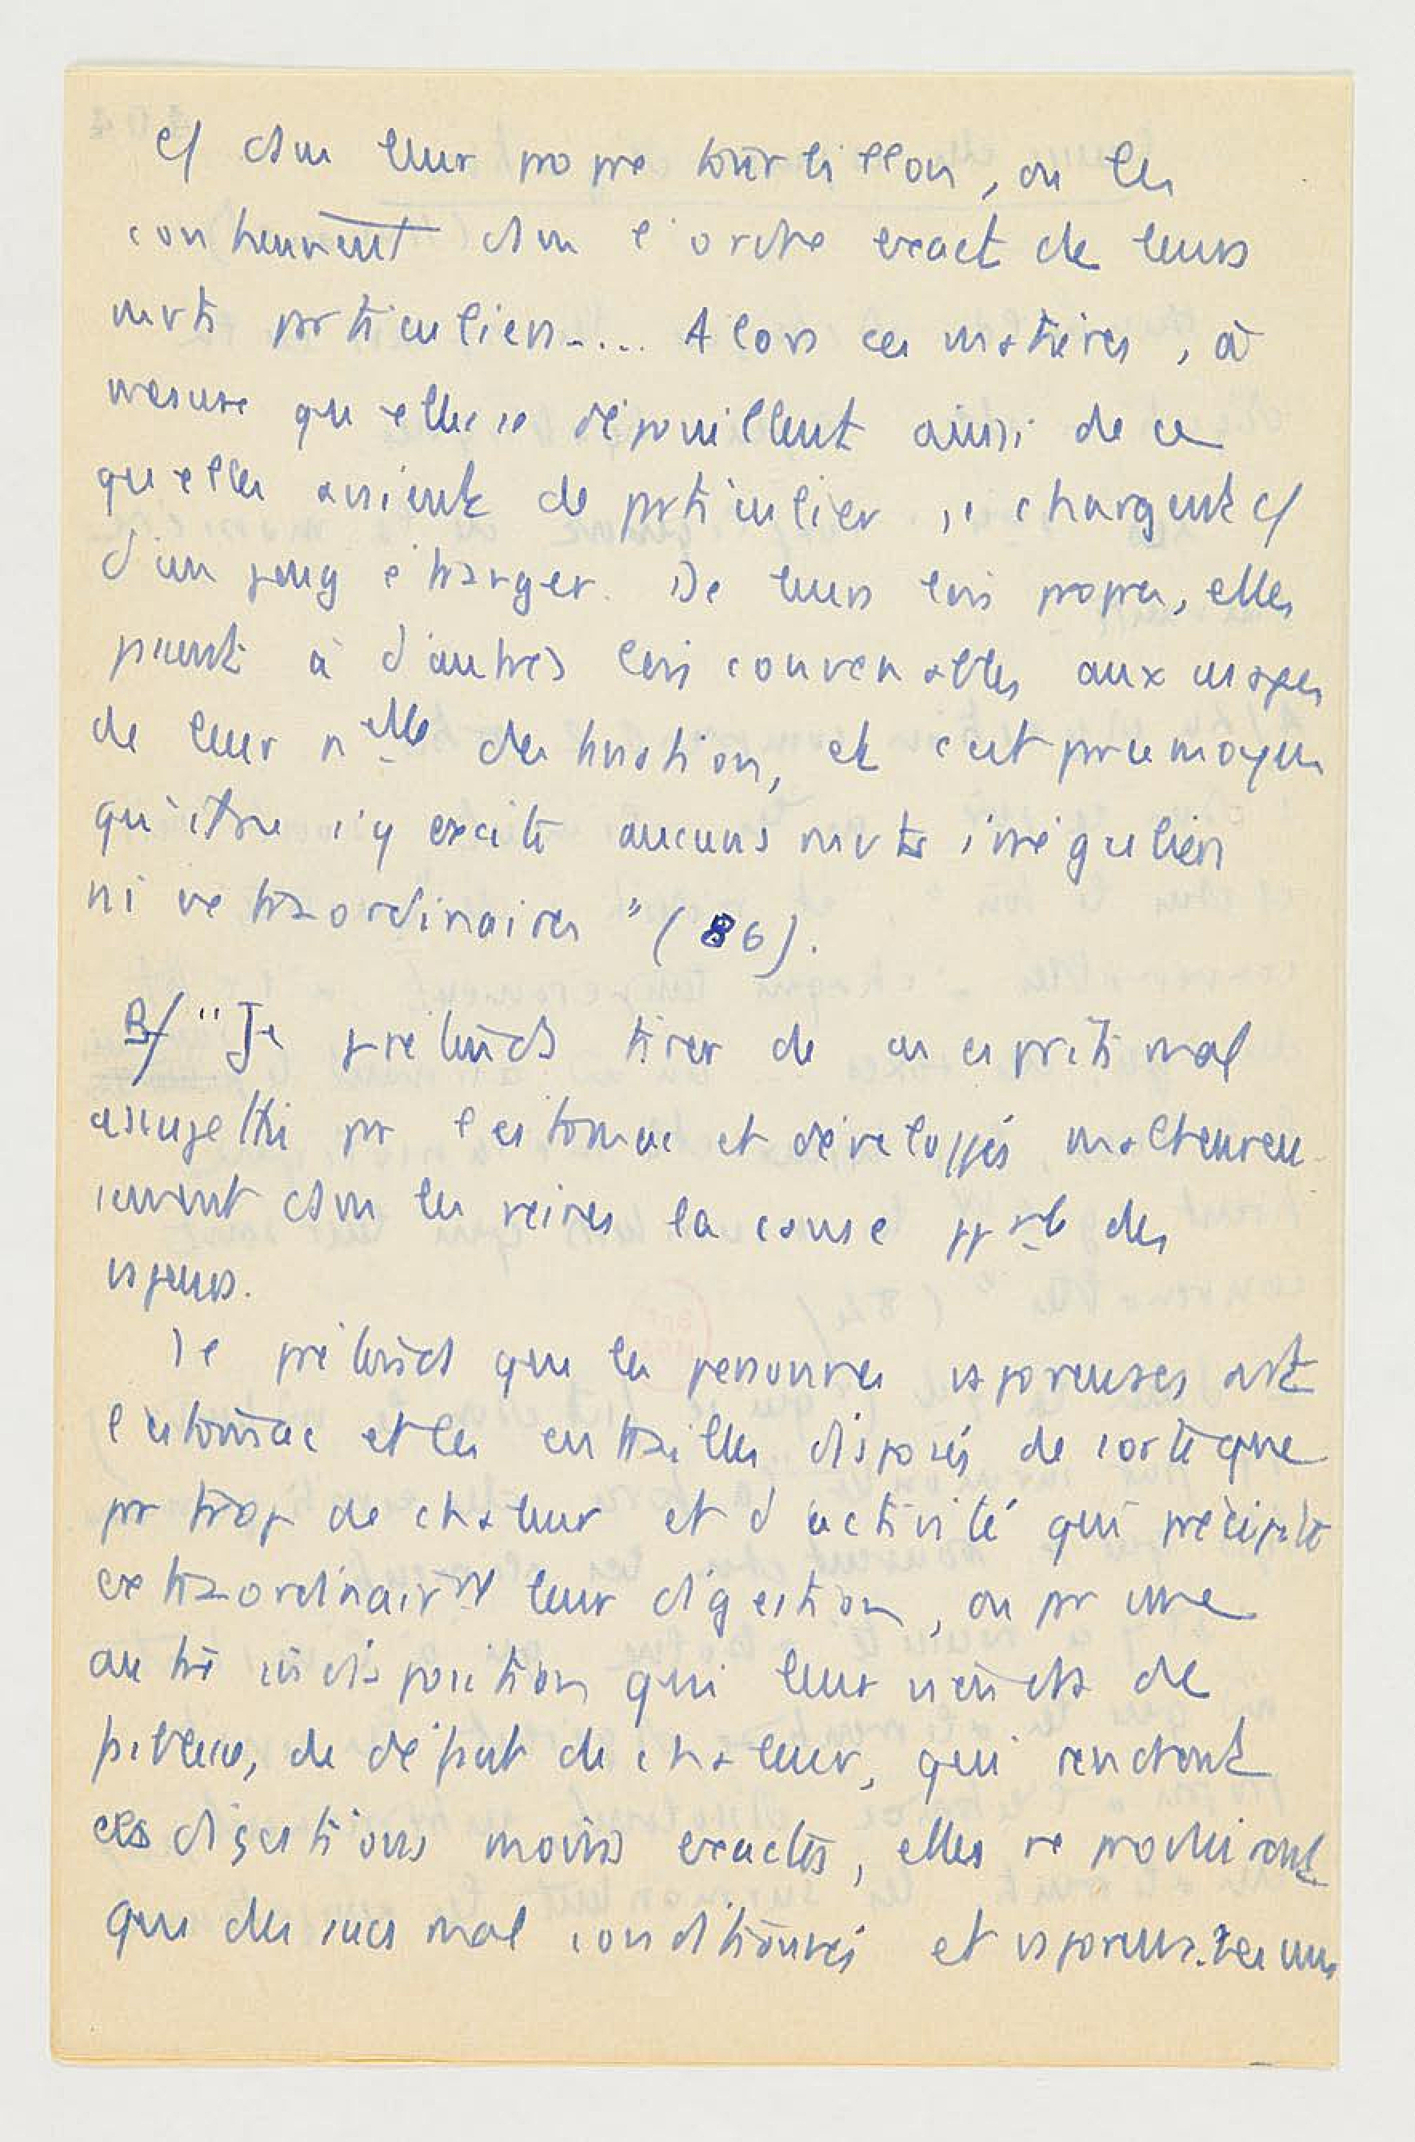 c/ dsu leur propre tourbillon, ou les
contiennent dsu l'ordre exact de leurs
mvts prticuliers.... Alors ces matières, à
mesure qu'elles se dépouillent ainsi de ce
qu'elles avaient de prticulier, se chargent c/
d'un joug étranger. De leurs lois propres, elles
psent à d'autres lois convenables aux usages
de leur nelle destination, et c'est pr ce moyen
qu'il ne s'y excite aucuns mvts irréguliers
ni extraordinaires" (86).
B/ "Je prétends tirer de ces esprits mal
assujettis pr l'estomac et développés malheureu-
sement ds les veines la cause pple des
vapeurs.
Je prétends que les personnes vaporeuses ont
l'estomac et les entrailles disposés de sorte que
pr trop de chaleur et d'activité qui précipite
extraordinairt leur digestion, ou pr une
autre indisposition qui leur viendra de
faiblesse, de défaut de chaleur, qui rendront
les digestions moins exactes, elles ne produiront
que des sucs mal conditionnés et vaporeux. Ces sucs